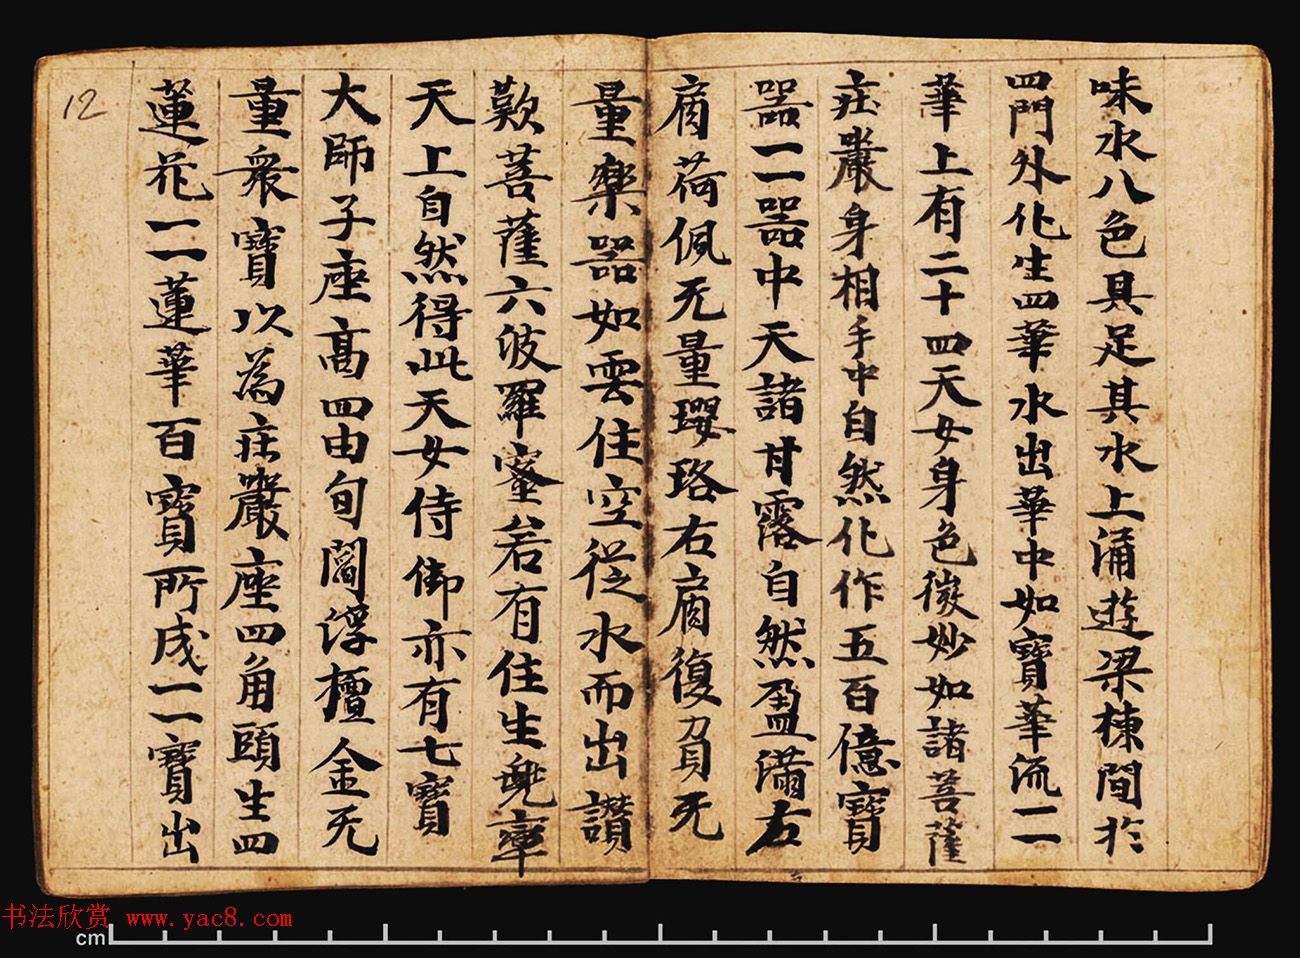 味水八色具足其水上涌遊梁棟間於
四門外化生四華水出華中如寶華流一一
華上有二十四天女身色微妙如諸菩薩
莊嚴身相手中自然化作五百億寶
器一一器中天諸甘露自然盈滿左
肩荷佩无量瓔珞右肩復負无
量樂器如雲住空從水而出讃
歎菩薩六波羅蜜若有住生兜率
天上自然得此天女侍御亦有七寶
大師子座高四由旬閻浮檀金无
量衆寶以為莊嚴座四角頭生四
蓮花一一蓮華百寶所成一一寶出
12
书法欣赏 www.yac8.com
cm